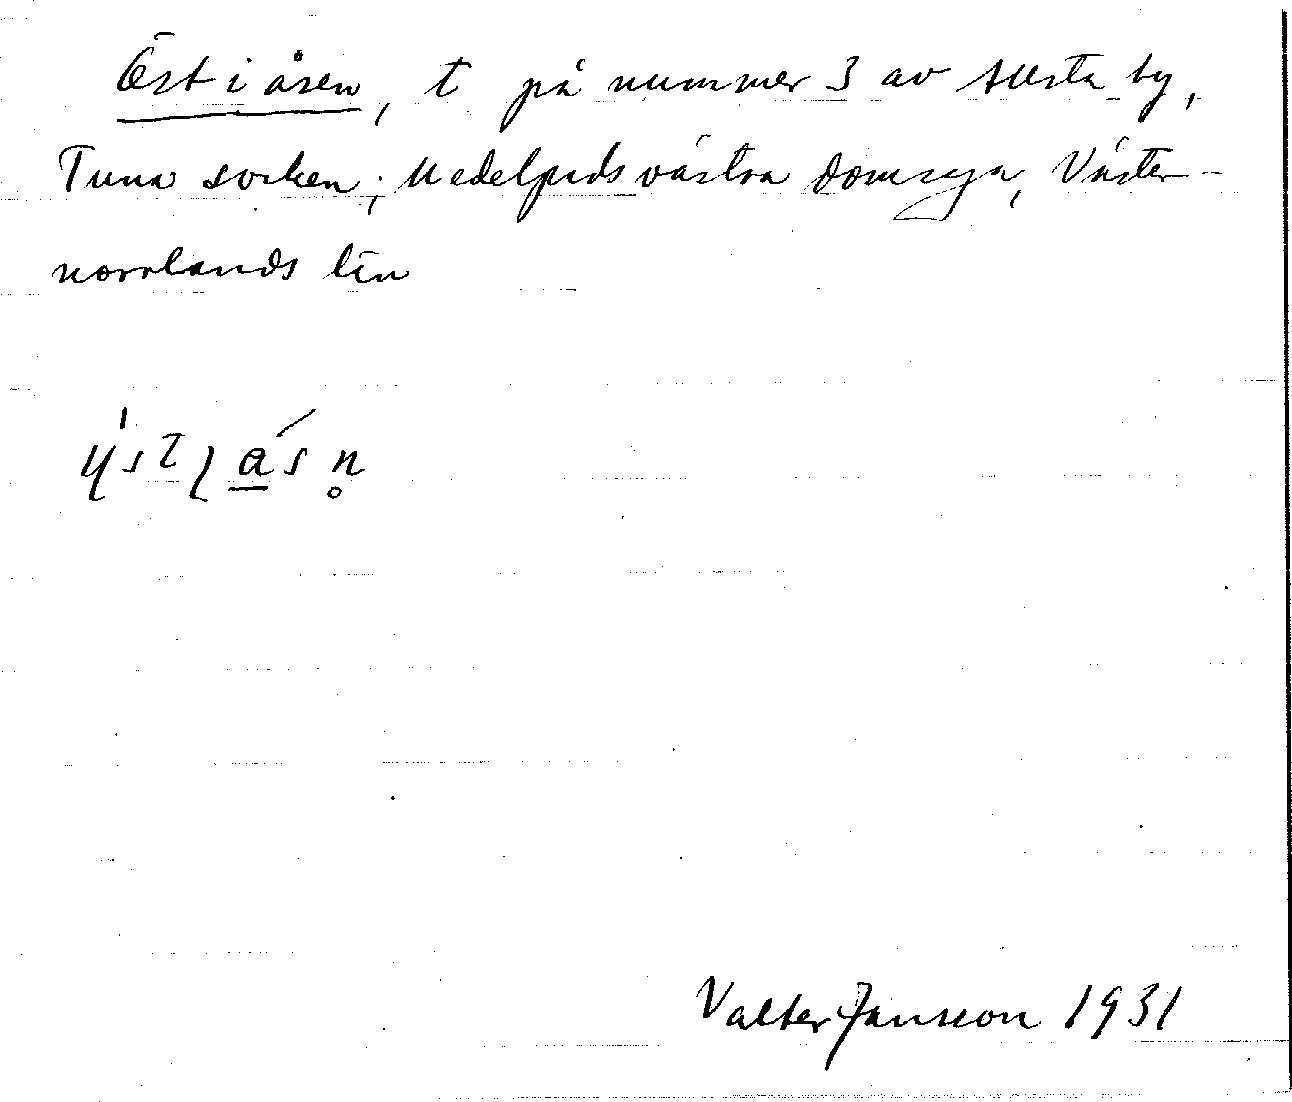 Öst i åsen, t på nummer 3 av Allsta by,
Tuna socken, Medelpads västra domsaga, Väster-
norrlands län
Valter Jansson 1931